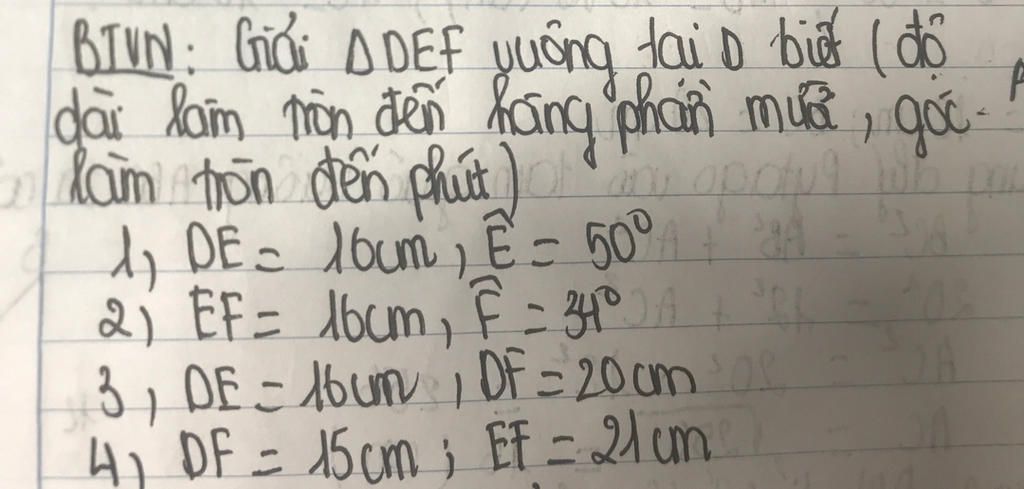 BTVN: Giải ΔDEF vuông tại D biết (độ
dài làm tròn đến hàng phần mười, góc
làm tròn đến phút)
1, DE = 16cm, Ê = 50°
2) EF = 16cm, F̂ = 34°
3, DE = 16cm, DF = 20cm
4, DF = 15cm; EF = 21cm